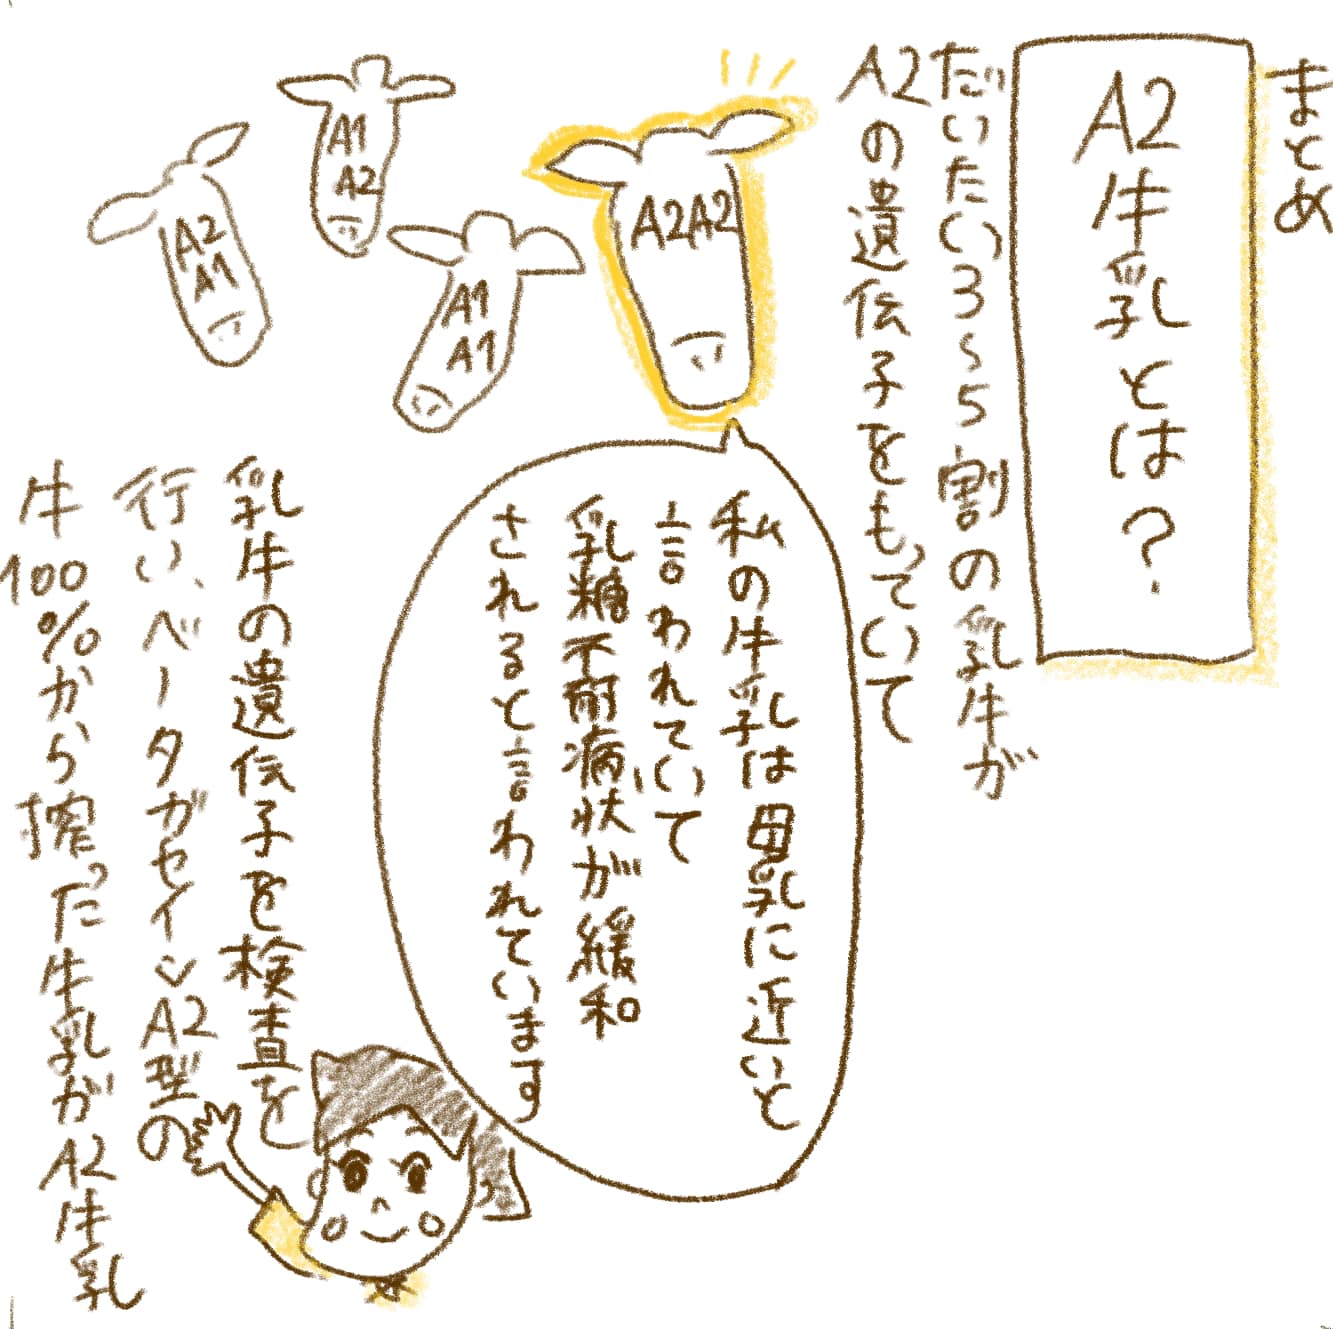 まとめ
A2牛乳とは?
だいたい3~5割の乳牛が
A2の遺伝子をもっていて
A2A2
A1
A2
A1
A1
A2
A1
私の牛乳は母乳に近いと
言われていて
乳糖不耐病状が緩和
されると言われています
乳牛の遺伝子を検査を
行い、ベータガゼインA2型の
牛100%から搾った牛乳がA2牛乳